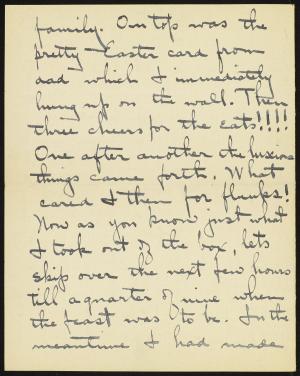 family. On top was the
pretty Easter card from
dad which I immediately
hung up on the wall. Then
three cheers for the eats!!!!
One after another the luxious
things came forth. What
cared I then for flunks!
Now as you know just what
I took out of the box, lets
skip over the next few hours
till a quarter of nine when
the feast was to be. In the
meantime I had made